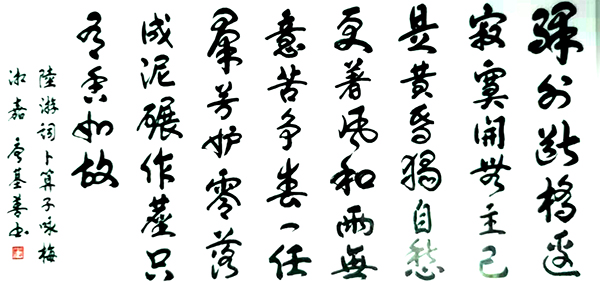 驛外斷橋邊
寂寞開無主已
是黄昏獨自愁
更著風和雨無
意苦争春一任
羣芳妒零落
成泥碾作塵只
有香如故
陸游詞卜算子咏梅
淑嘉 基善书